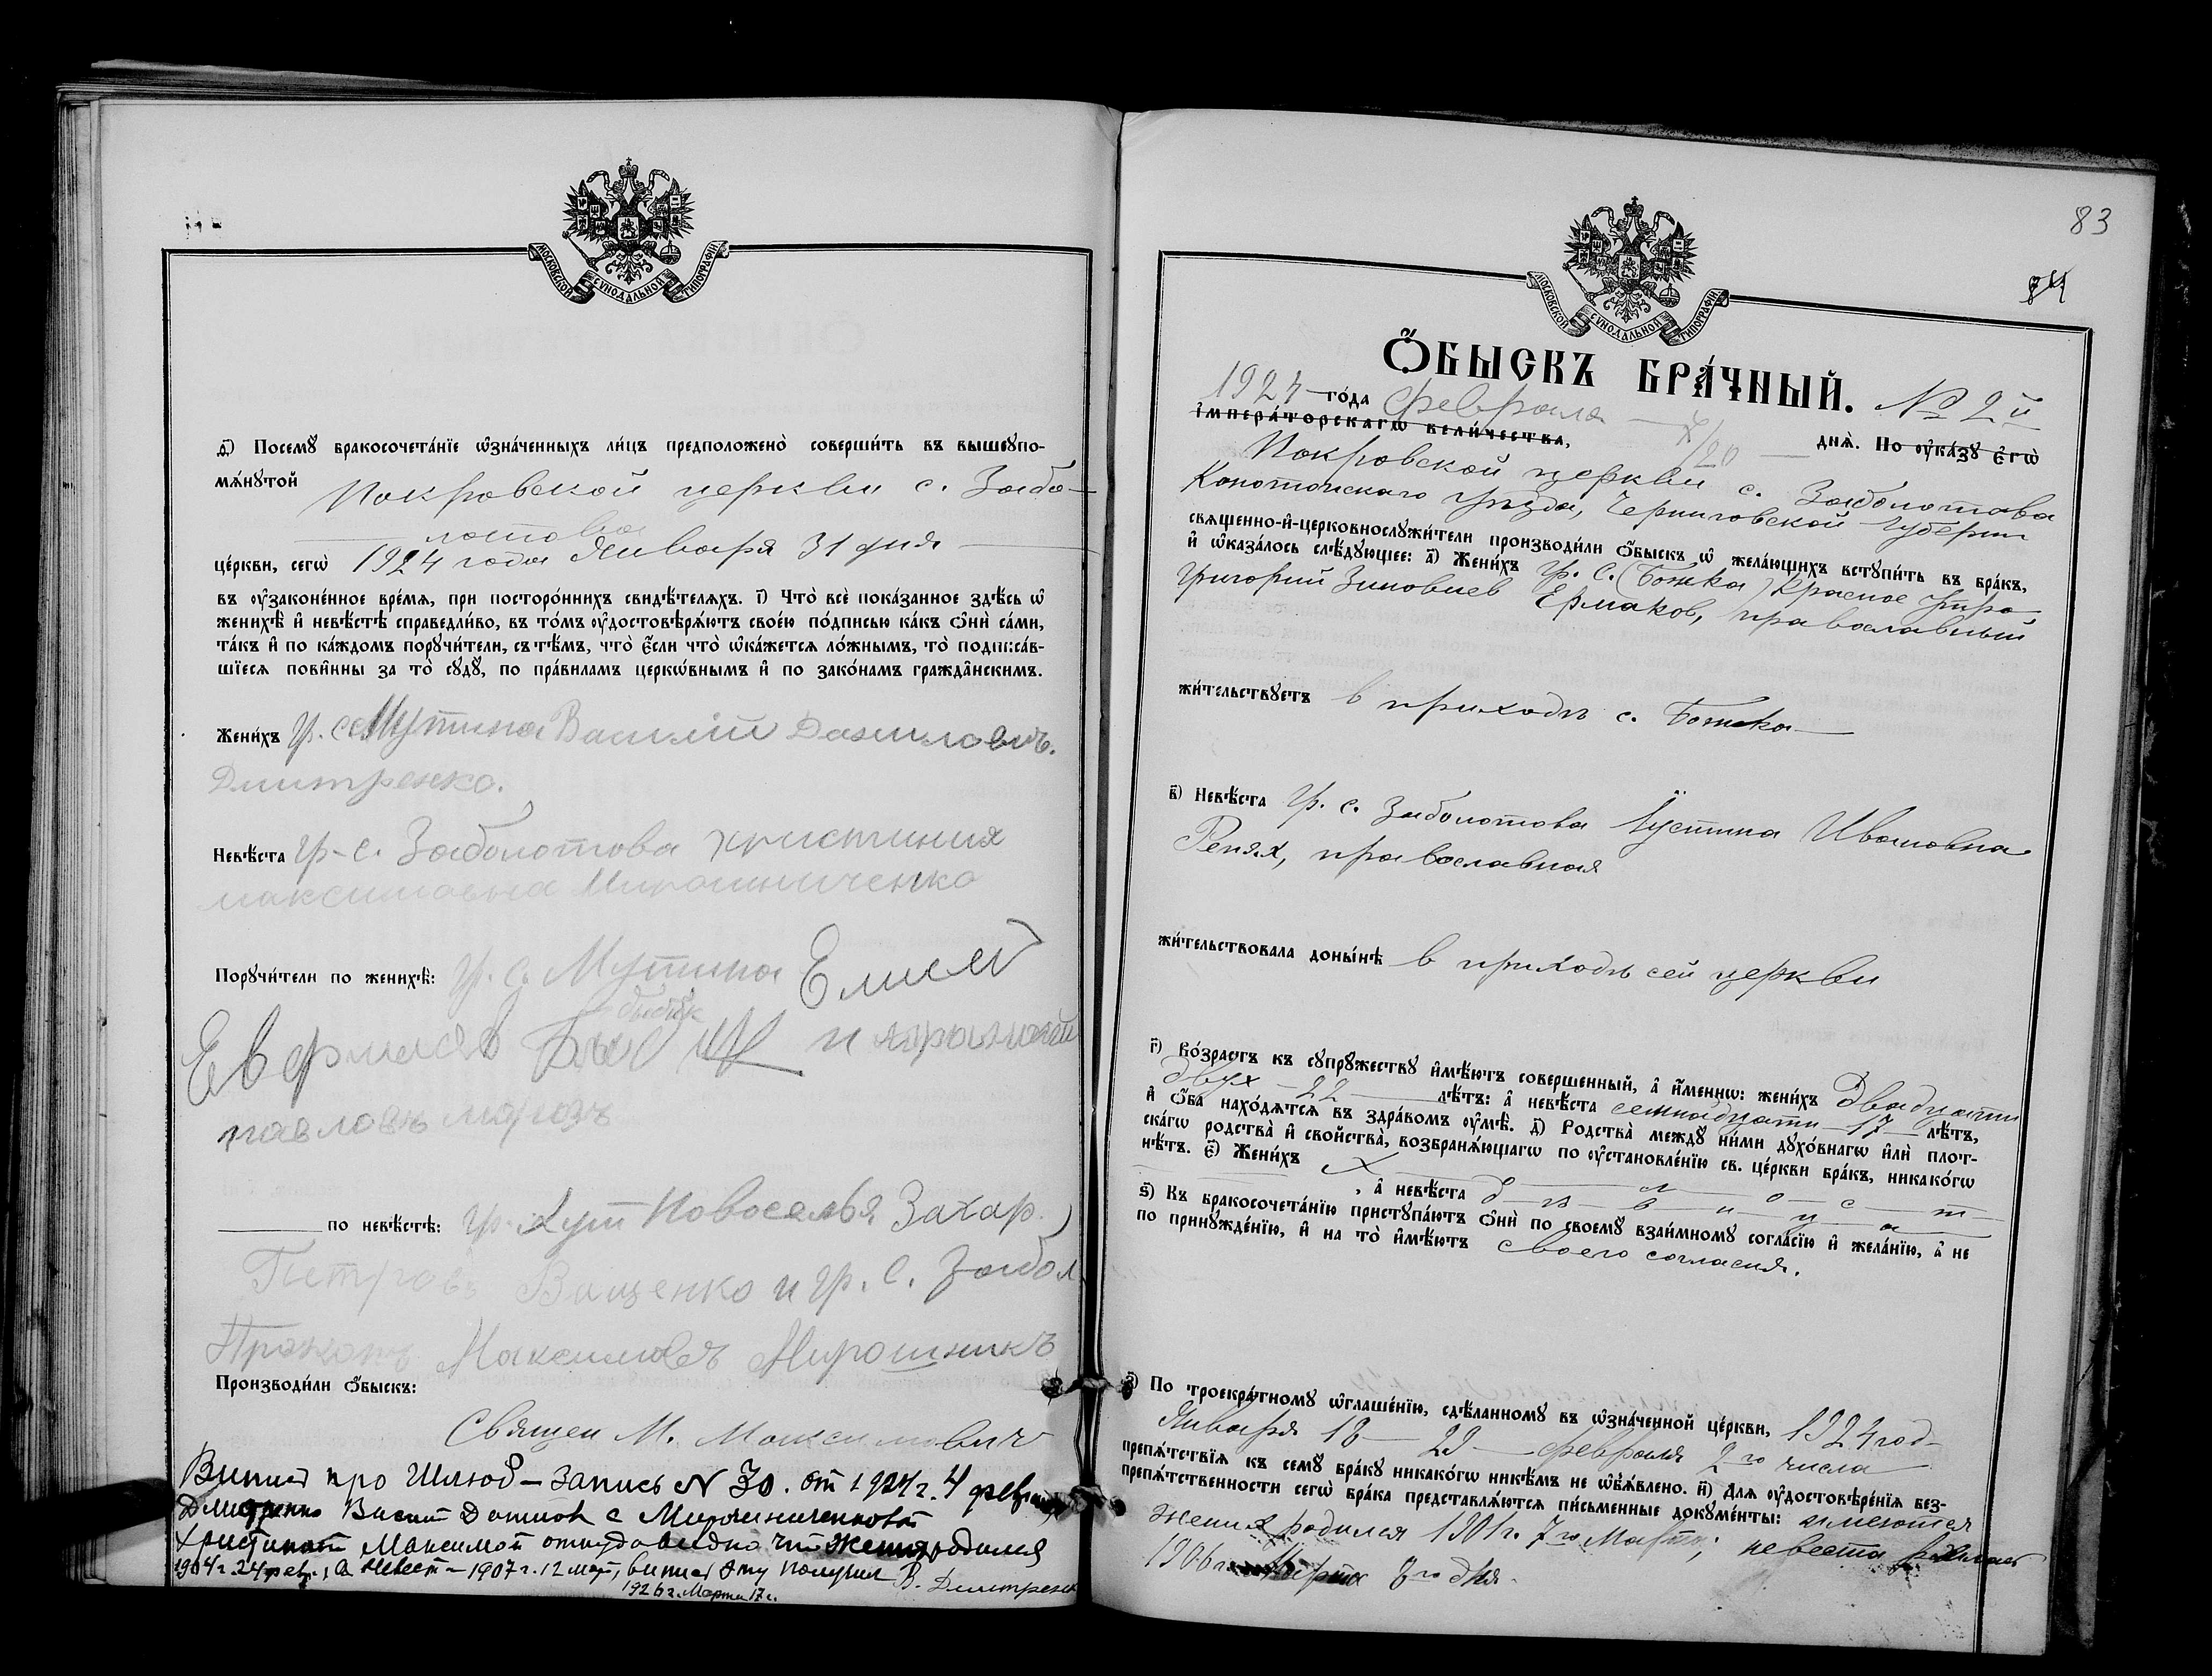 МОСКОВСКОЙ СУНОДАЛЬНОЙ ТИПОГРАФІИ
д҃) Посемꙋ бракосочета́нїе ѡ҆зна́ченныхъ ли́цъ предположено̀ соверши́ть въ вышеꙋпо-
мѧ́нꙋтой Покровской церкви с. Забо-
лотова
це́ркви, сегѡ̀ 1924 года Января 31 дня
въ ᲂу҆зако́ненное вре́мѧ, при посторо́ннихъ свидѣ́телѧхъ. і҃) Что̀ всѐ пока́занное здѣ́сь ѡ҆
женихѣ̀ и҆ невѣ́стѣ справедли́во, въ то́мъ ᲂу҆достовѣрѧ́ютъ свое́ю по́дписью ка́къ ѻ҆нѝ са́ми,
та́къ и҆ по ка́ждомъ порꙋчи́тели, съ тѣ́мъ, что̀ є҆́сли что̀ ѡ҆ка́жется ло́жнымъ, то̀ подписа́в-
шїесѧ пови́нны за то̀ сꙋдꙋ̀, по пра́виламъ церко́внымъ и҆ по зако́намъ гражда́нскимъ.
Жени́хъ Гр. с. Мутина Василий Данилович.
Дмитренко.
Невѣ́ста Гр-с. Заболотова христиния
максимовна Мирошниченко
Порꙋчи́тели по женихѣ̀: Гр. с. Мутина
и
павловъ
по невѣ́стѣ: Гр. Хут Новоселья Захар
Петровъ Ващенко и гр. с. Забол
Максимовъ Мирошникъ
Производи́ли ѻ҆́быскъ:
Священ М. Максимович
Випис про Шлюб – запись N 30. от 1924 г. 4
Дмитренко с
что жених родился
1904 г. 24 фев., а Невест – 1907 г. 12 получил В. Дмитренк
1926 г. Марта 17 г.
83
84
МОСКОВСКОЙ СУНОДАЛЬНОЙ ТИПОГРАФІИ
Ѻ҆БЫСКЪ БРА́ЧНЫЙ. № 2й
1924 го́да февраля 7/20 днѧ̀. По ᲂу҆ка́зꙋ є҆гѡ̀
і҆мпера́торскагѡ вели́чества,
Покровской церкви с. Заболотова
Конотопскаго уезда, Черниговской губерни
свѧще́нно-и҆-церковнослꙋжи́тели производи́ли ѻ҆́быскъ ѡ҆ жела́ющихъ встꙋпи́ть въ бра́къ,
и҆ ѡ҆каза́лось слѣ́дꙋющее: а҃) Жени́хъ Гр. С. (Божка) Красное Утро
Григорий Зиновиев Ермаков, православный
жи́тельствꙋетъ в приходе с. Божка
в҃) Невѣ́ста Гр. с. Заболотова Іустина Ивановна
Репях, православная
жи́тельствовала доны́нѣ в приходе сей церкви
г҃) Во́зрастъ къ сꙋпрꙋ́жествꙋ и҆мѣ́ютъ соверше́нный, а҆ и҆́меннѡ: жени́хъ Двадцати
двух – 22 лѣ́тъ: а҆ невѣ́ста семнадцати – 17 – лѣ́тъ,
и҆ ѻ҆́ба нахо́дѧтсѧ въ здра́вомъ ᲂу҆мѣ̀. д҃) Родства̀ междꙋ̀ ни́ми дꙋхо́внагѡ и҆лѝ плот-
ска́гѡ родства̀ и҆ свойства̀, возбранѧ́ющагѡ по ᲂу҆становле́нїю св. це́ркви бра́къ, никако́гѡ
нѣ́тъ. є҃) Жени́хъ х – о – л – о – с – т
, а҆ невѣ́ста д – е – в – и – ц – а
ѕ҃) Къ бракосочета́нїю пристꙋпа́ютъ ѻ҆нѝ по своемꙋ̀ взаи́мномꙋ согла́сїю и҆ жела́нїю, а҆ не
по принꙋжде́нїю, и҆ на то̀ и҆мѣ́ютъ своего согласия.
з҃) По троекра́тномꙋ ѡ҆глаше́нїю, сдѣ́ланномꙋ въ ѡ҆зна́ченной це́ркви, 1924 год
Января 18 – 29 – февраля 2го числа
препѧ́тствїѧ къ семꙋ̀ бра́кꙋ никако́гѡ никѣ́мъ не ѡ҆б̾ѧ́влено. и҃) Длѧ̀ ᲂу҆достовѣре́нїѧ без-
препѧ́тственности сегѡ̀ бра́ка представлѧ́ютсѧ пи́сьменные докꙋме́нты: имеются
Жених родился 1901 г. 7го Марта; невеста родилась
1906 г. 8го дня.